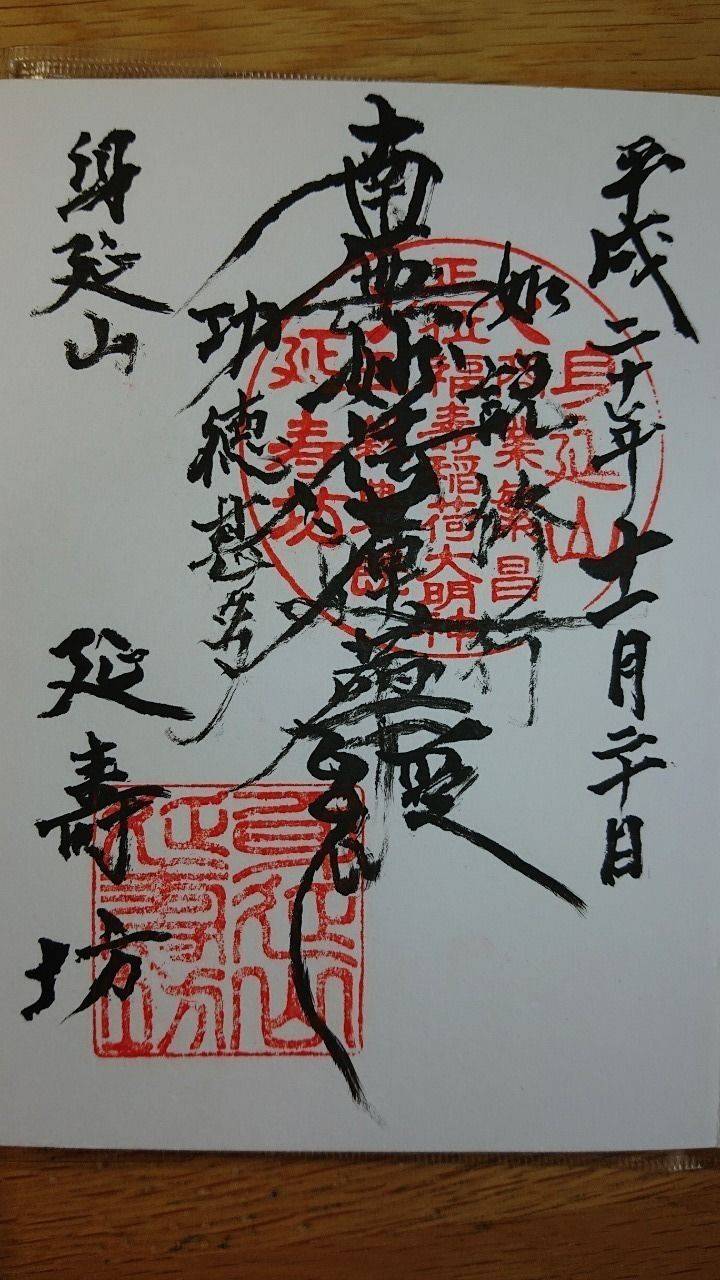 平成二十年十一月二十日
如説修行
南無妙法蓮華経
功徳甚多
身延山
延壽坊
身延山
業繁昌
正一位福壽稲荷大明神
延寿坊
身延山
延寿坊